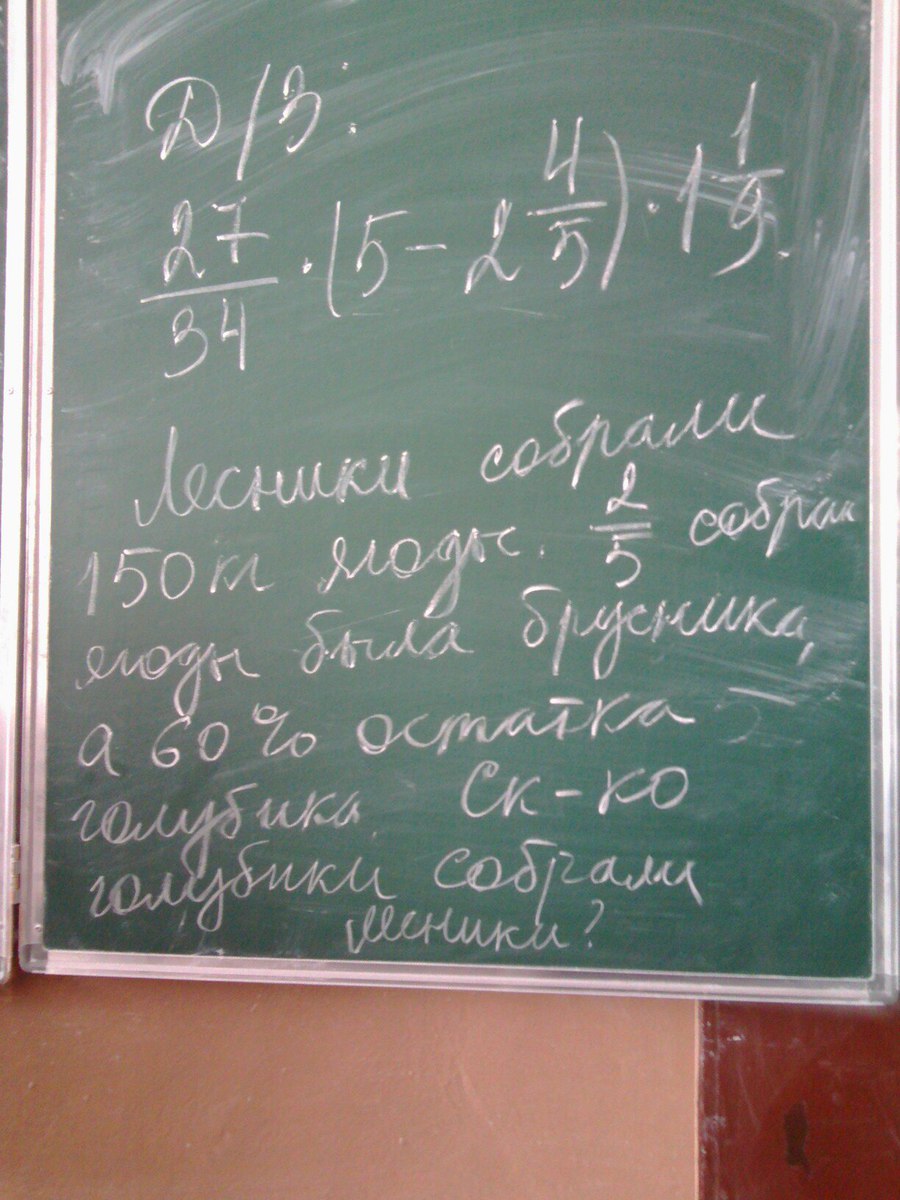 Д/З:
27/34 · (5 - 2 4/5) · 1 1/9.
Лесники собрали
150 кг ягоды. 2/5 собран
ягоды была брусника,
а 60% остатка -
голубика. Ск-ко
голубики собрали
лесники?